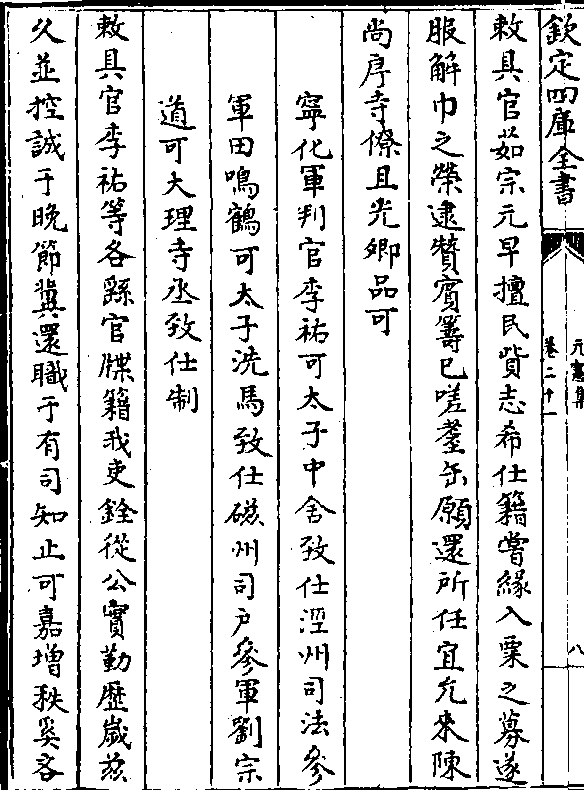 欽定四庫全書
元憲集
卷二十一
八
敕具官茹宗元早擅民貲志希仕籍嘗緣入粟之募遂
服解巾之榮逮贊賓籌已嗟耋缶願還所任宜允來陳
尚序寺僚且光卿品可
寧化軍判官李祐可太子中舍致仕涇州司法參
軍田鳴鶴可太子洗馬致仕磁州司戶參軍劉宗
道可大理寺丞致仕制
敕具官李祐等各繇官牒籍我吏銓從公實勤歷歲茲
久並控誠于晚節冀還職于有司知止可嘉增秩奚吝